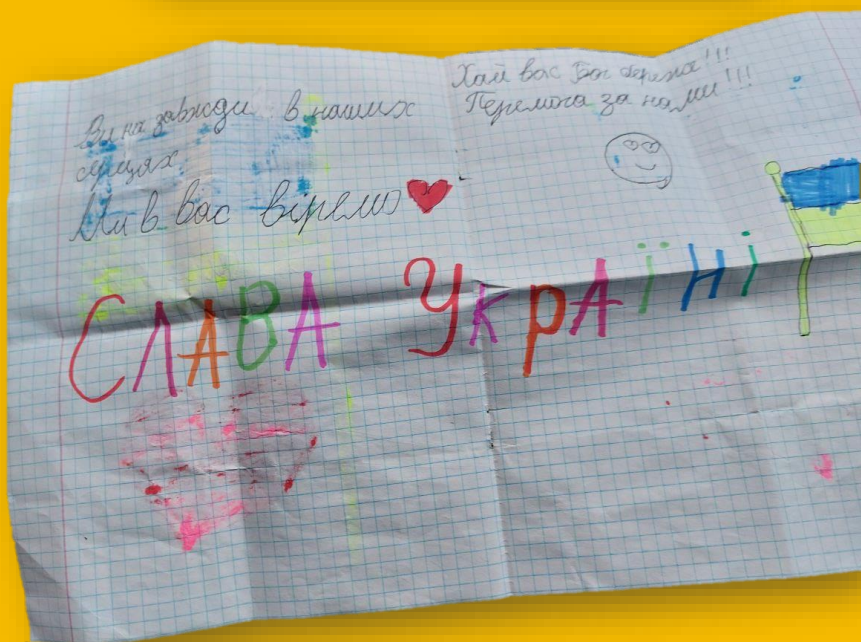 Ви на завжди в наших
серцях
Ми в вас віримо
Хай вас Бог береже!!!
Перемога за нами!!!
СЛАВА УкрАїні